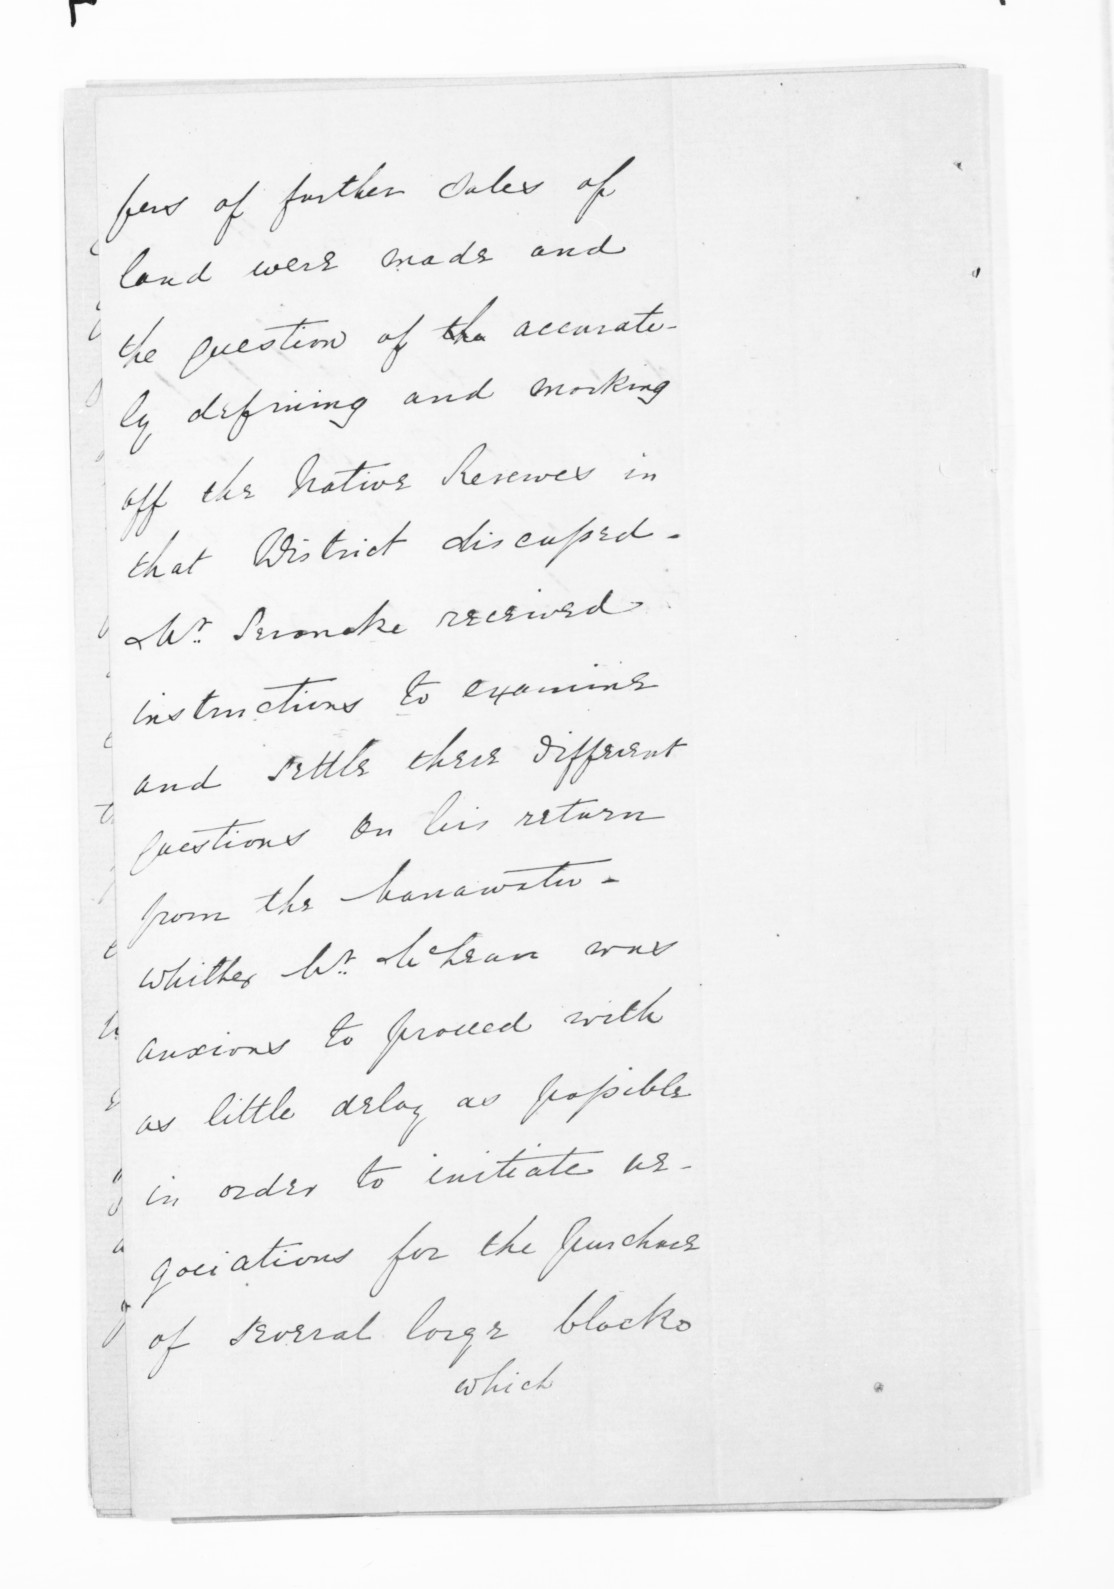 fers of further sales of
land were made and
the question of the accurate-
ly defining and marking
off the Native Reserves in
that District discussed.
Mr. Searancke received
instructions to examine
and settle these different
questions on his return
from the Manawatu -
whither Mr. McLean was
anxious to proceed with
as little delay as possible
in order to initiate ne-
gociations for the purchase
of several large blocks
which